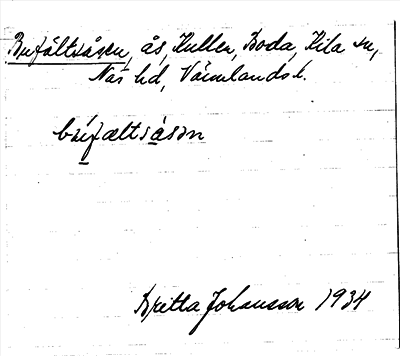 Bufältsåsen, ås, Kullen, Boda, Kila sn,
Näs hd, Värmlands l.
bufæltsåsən
Britta Johansson 1934